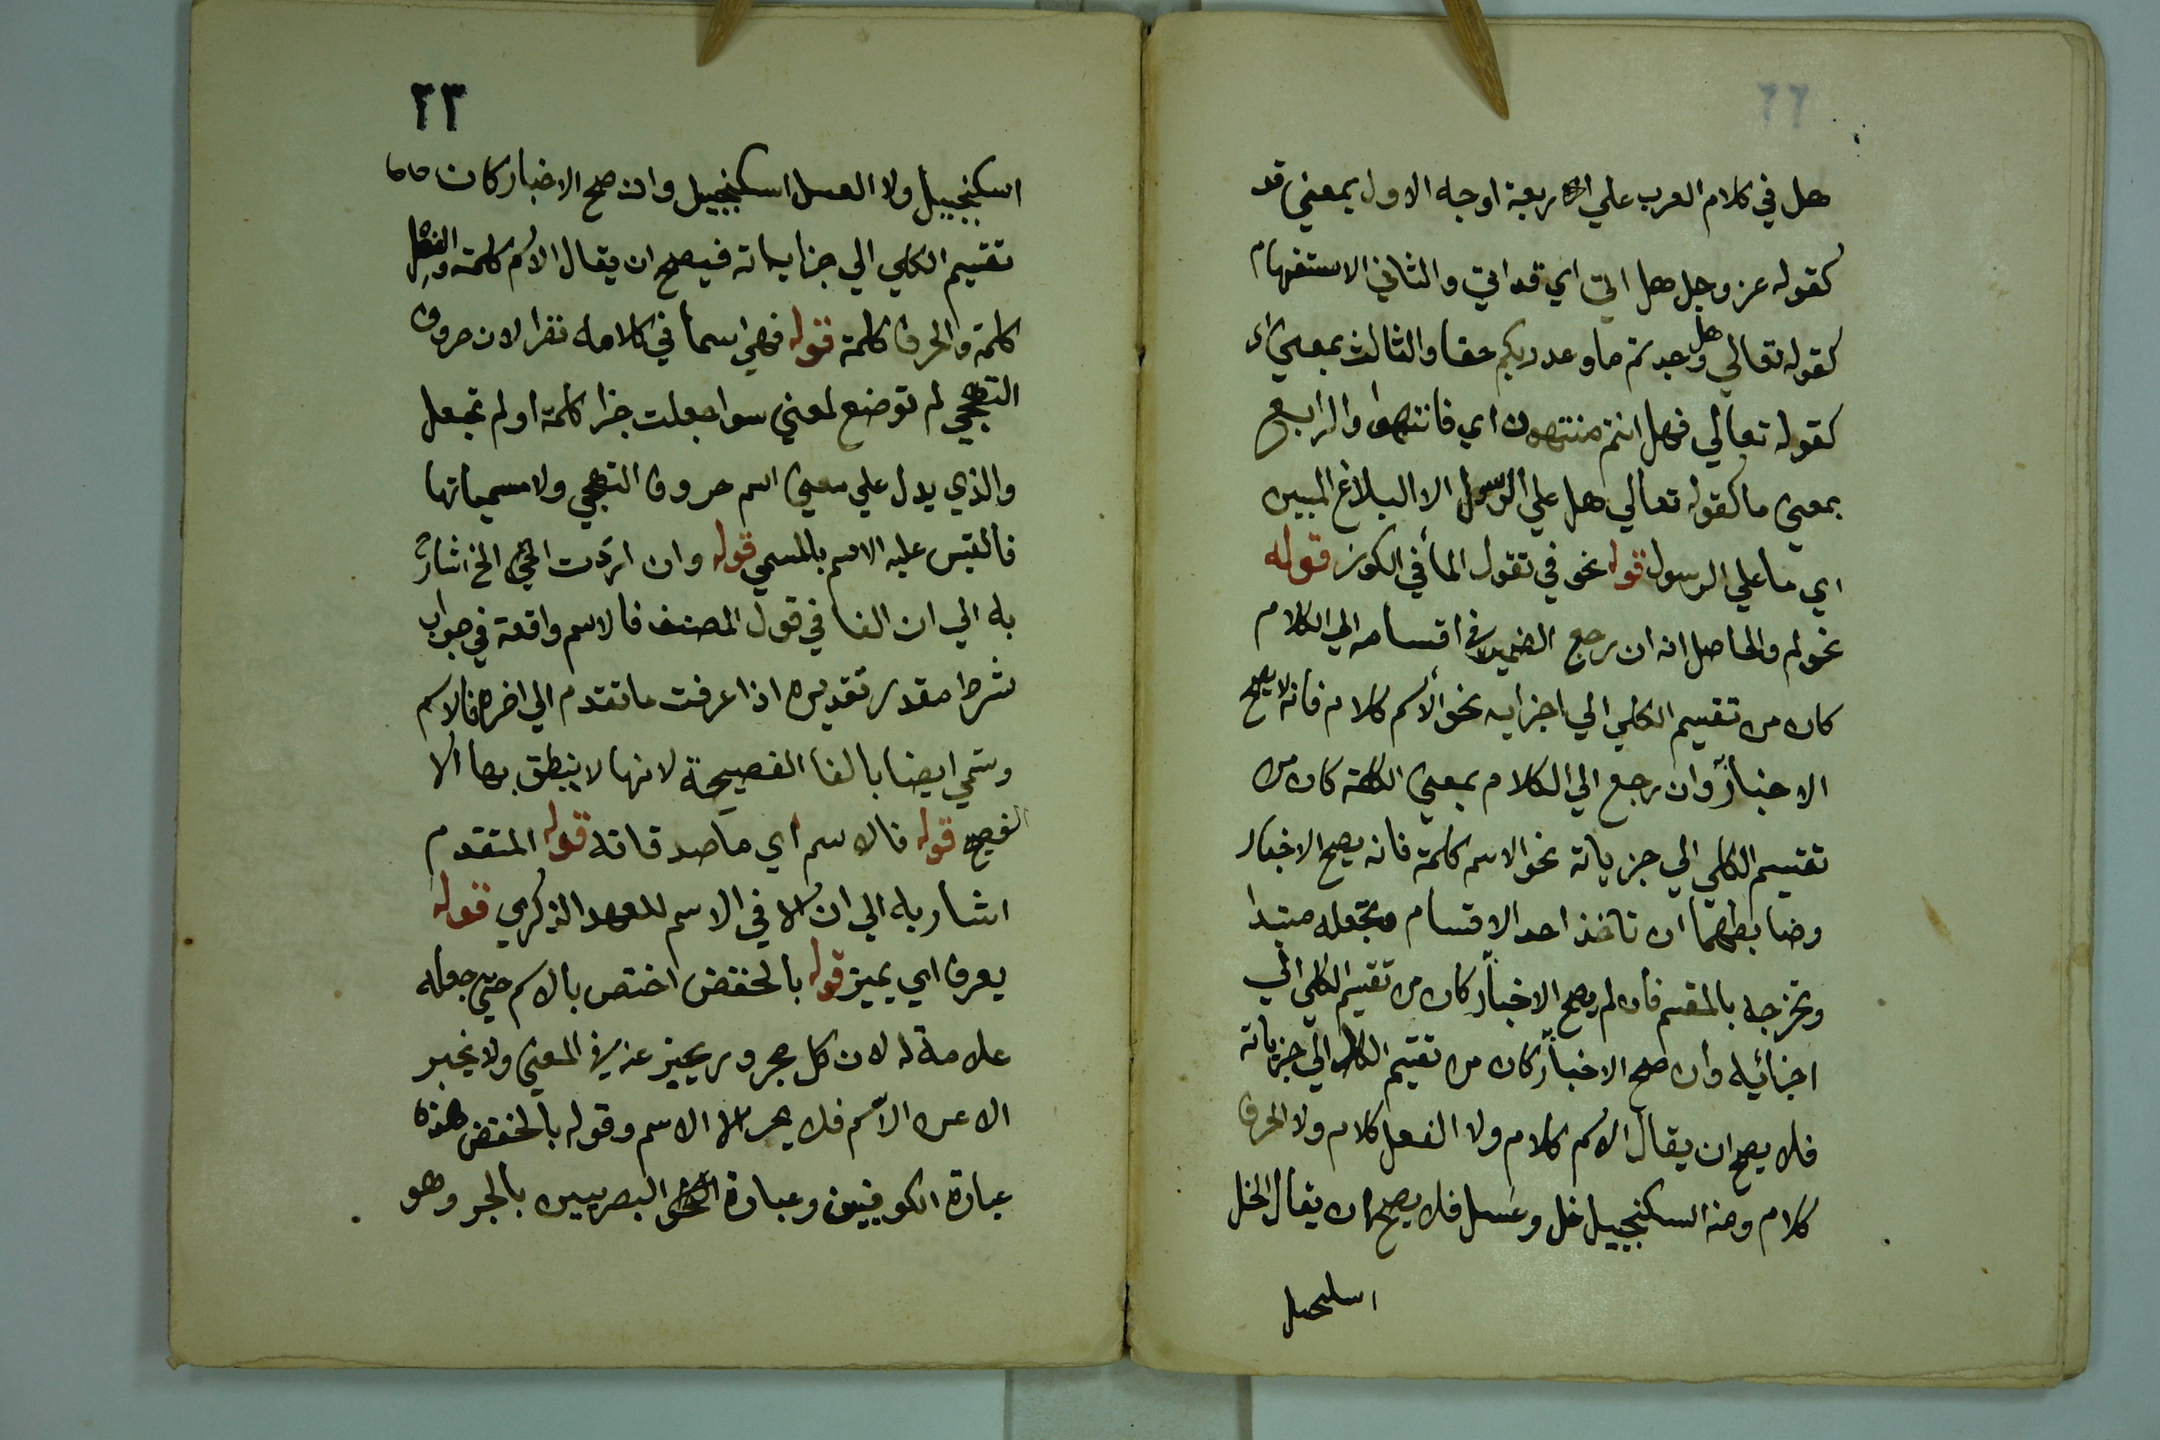 هل في كلام العرب علي اربعة اوجه الاول بمعني قد
كقوله عز وجل هل اتي اي قد اتي والثاني الاستفهام
كقوله تعالي وهل وجدتم ما وعد ربكم حقا والثالث بمعني
كقوله تعالي فهل انتم منتهون اي فانتهوا والرابع
بمعني ما كقوله تعالي هل علي الرسول الا البلاغ المبين
اي ما علي الرسول قوله نحو في تقول الماء في الكوز قوله
نحو لم والحاصل انه ان رجع الضمير في اقسامه الي الكلام
كان من تقسيم الكلي الي اجزايه نحو الاسم كلام فانه لا يصح
الاخبار وان رجع الي الكلام بمعني الكلمة كان من
تقسيم الكلي الي جزياته نحو الاسم كلمة فانه يصح الاخبار
وضابطهما ان تاخذ احد الاقسام وتجعله مبتدا
وتخرجه بالمقسم فان لم يصح الاخبار كان من تقسيم الكلي الي
اجزائيه وان صح الاخبار كان من تقسيم الكل الي جزياته
فلا يصح ان يقال الاسم كلام ولا الفعل كلام ولا الحرف
كلام ومنه السكنجبيل خل وعسل فلا يصح ان يقال الخل
اسكنجبيل
٢٣
اسكنجبيل ولا العسل اسكنجبيل وان صح الاخبار كان
تقسيم الكلي الي جزاياته فيصح ان يقال الاسم كلمة والفعل
كلمة والحرف كلمة قوله فهي اسما في كلامه نظرا لان حروف
التهجي لم توضع لمعني سوا جعلت جزا كلمة او لم تجعل
والذي يدل علي معني اسم حروف التهجي ولا مسمياتها
فالتبس عليه الاسم بالمسمي قوله وان اردت الخ اشار
به الي ان الفا في قول المصنف فالاسم واقعة في جواب
شرط مقدر تقديره اذا عرفت ما تقدم الي اخره فالاسم
وسمي ايضا بالفا الفصيحة لانها لا ينطق بها الا
الفصيح قوله فالاسم اي ما صدقاته قوله المتقدم
اشار به الي ان ال في الاسم للعهد الذكري قوله
يعرف اي يميز قوله بالخفض اختص بالاسم حتي جعله
علامة له لان كل مجرور يخبر عنه في المعني ولا يخبر
الا عن الاسم فلا يجر الا الاسم وقوله بالخفض هذه
عبارة الكوفيين وعبارة البصريين بالجر وهو